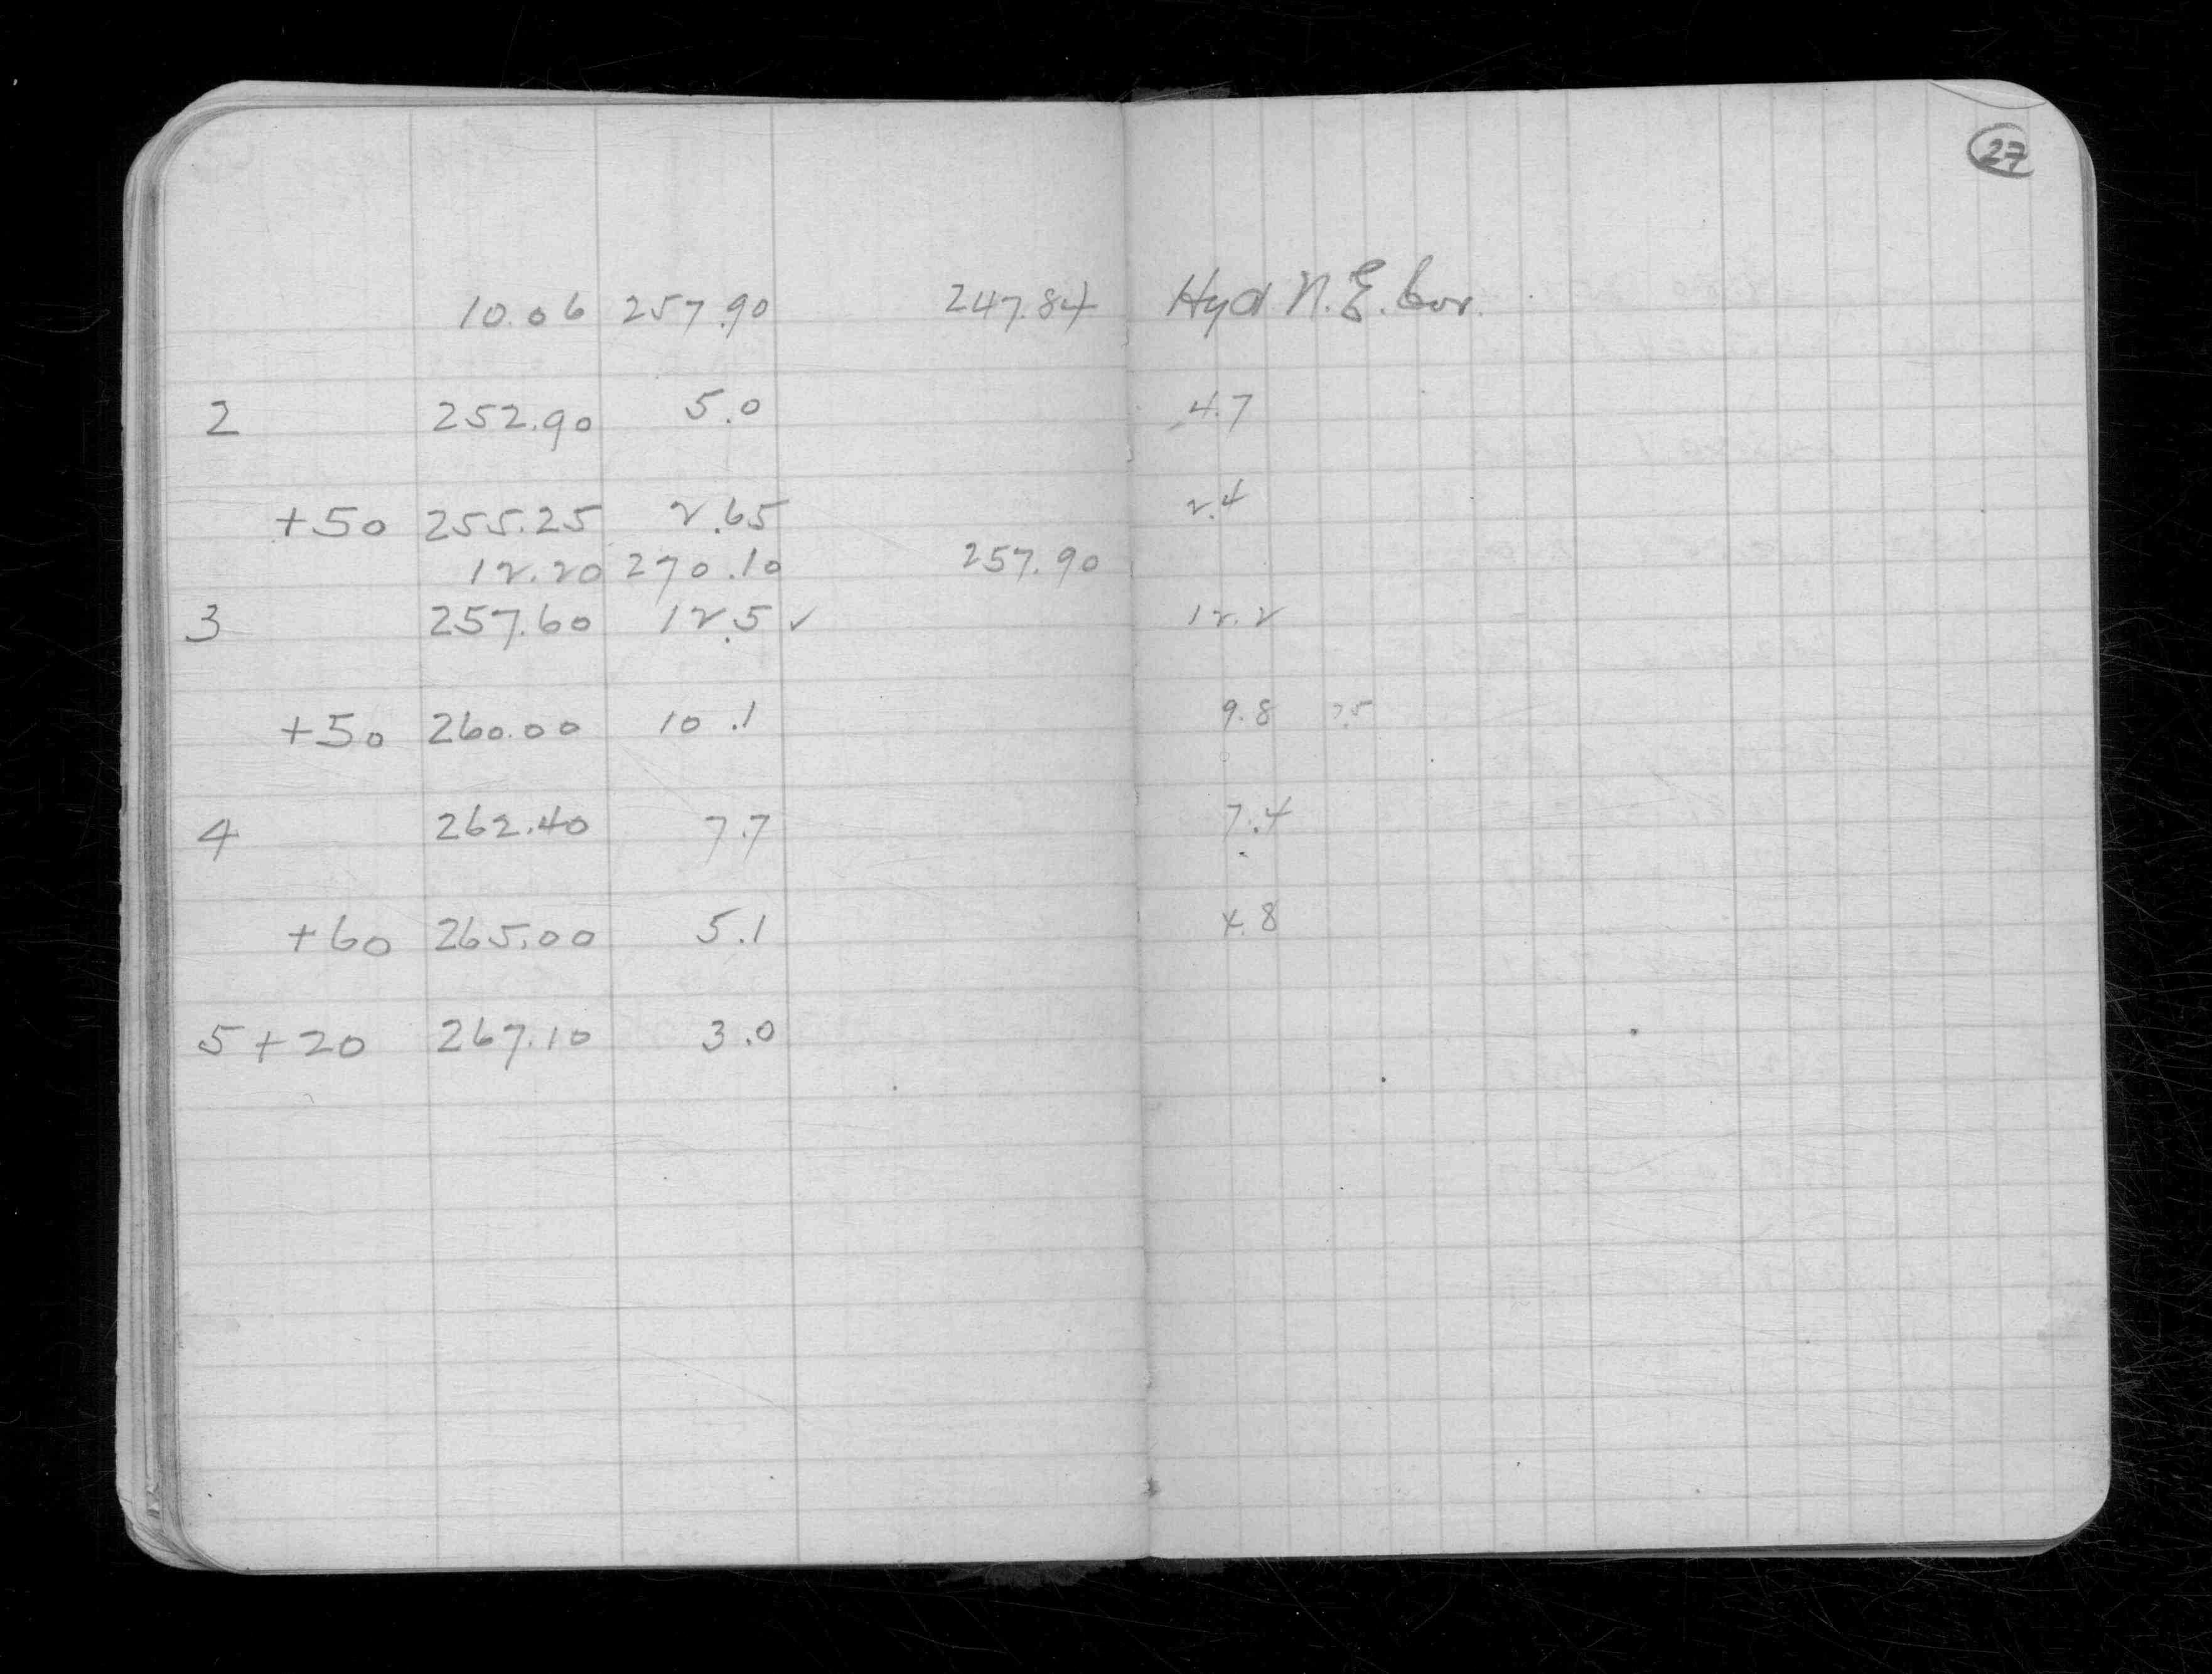 27
10.06 257.90 247.84 Hyd N.E. Cor.
2 252.90 5.0 4.7
+50 255.25 2.65 2.4
12.20 270.10 257.90
3 257.60 12.5 ✓ 12.2
+50 260.00 10.1 9.8 7.5
4 262.40 7.7 7.4
+60 265.00 5.1 4.8
5+20 267.10 3.0